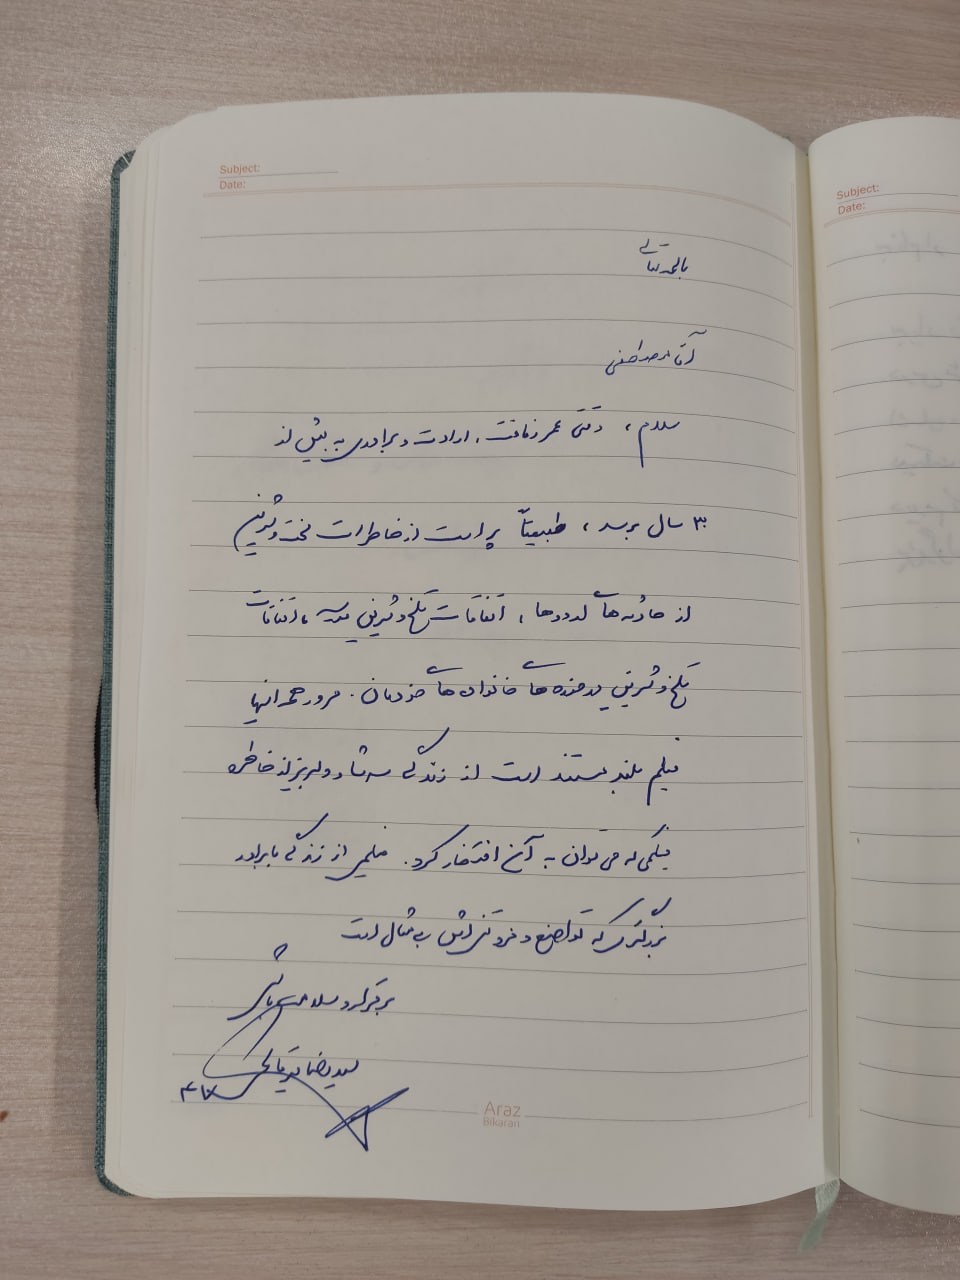 Subject:
Date:
باسمه تعالی
آقا
سلام، وقتی عمر رفاقت، ارادت و برادری به بیش از
۳۰ سال برسد، طبیعتاً پر است از خاطرات سخت و شیرین
از حادثه‌ها، اتفاقات تلخ و شیرین، اتفاقات
تلخ و شیرین خانواده‌های خودمان. مرور همه آنها
فیلم بلند مستندی است از زندگی و لبریز از خاطره
فیلمی که می‌توان به آن افتخار کرد. فیلمی از زندگی با برادر
بزرگتری که تواضع و فروتنی‌اش بی‌مثال است
برقرار و سلامت باشی
سید رضا
Araz
Bikaran
Subject:
Date: